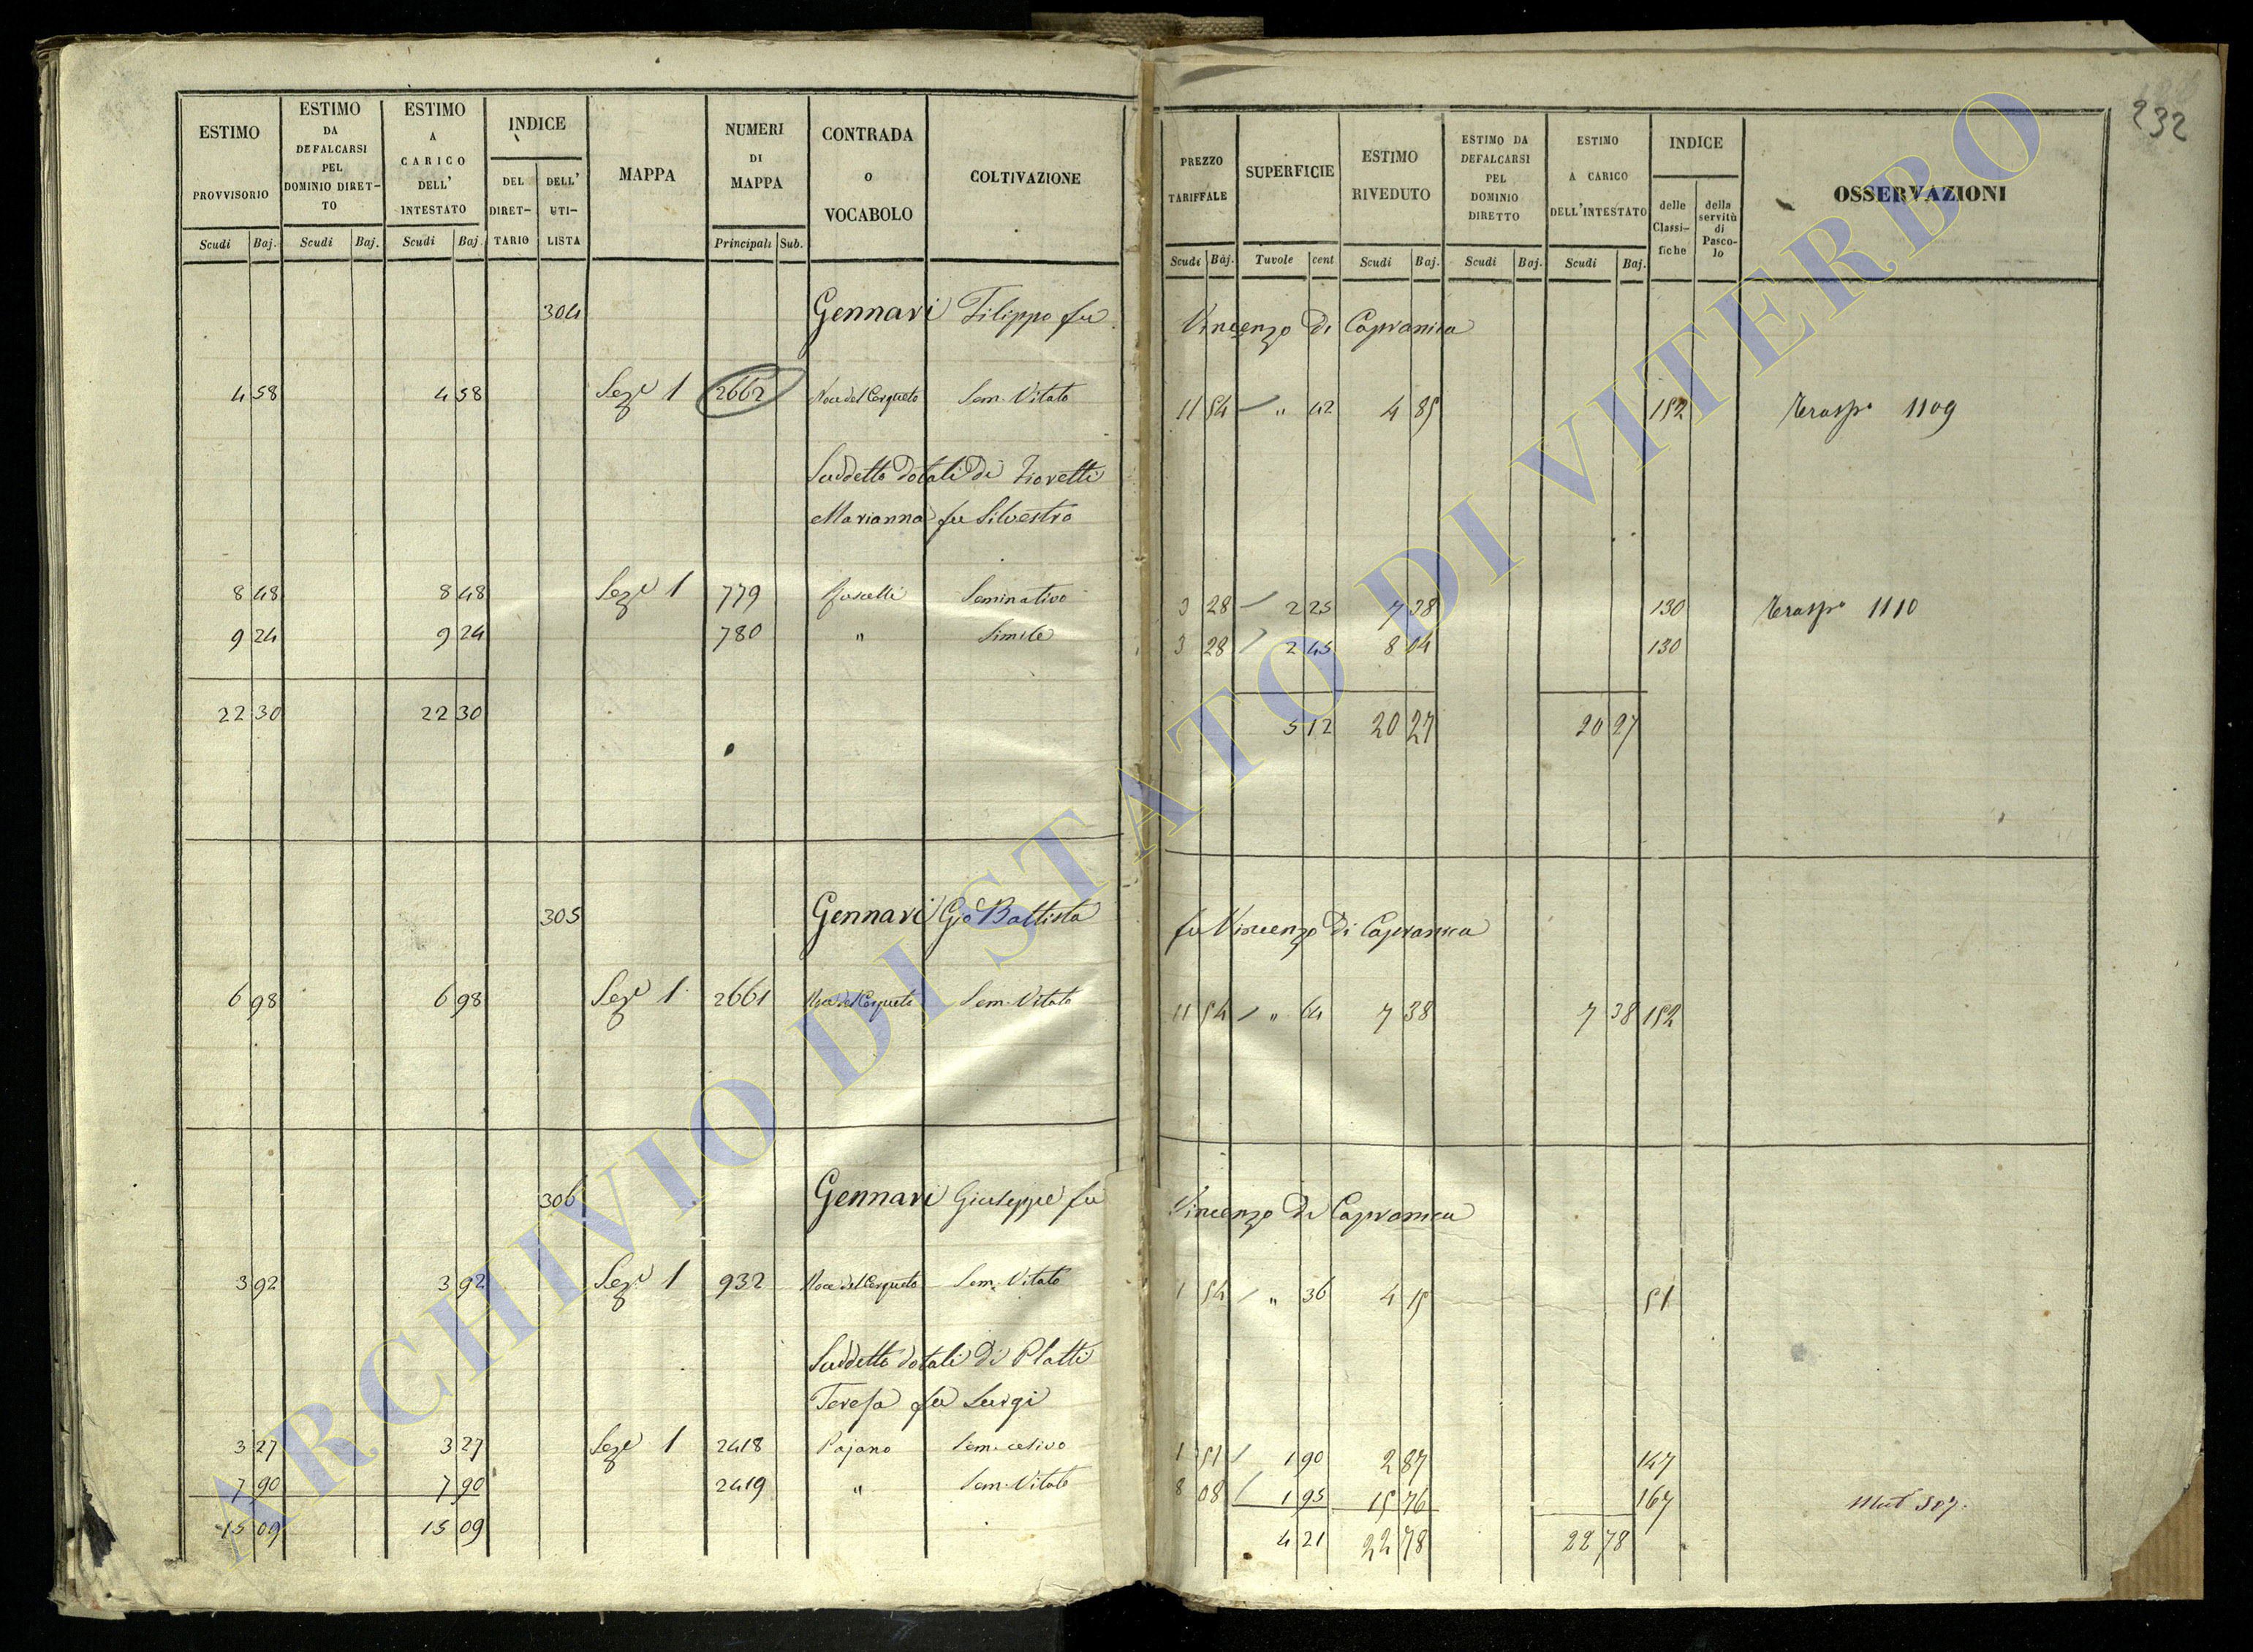 232
ESTIMO PROVVISORIO
ESTIMO DA DEFALCARSI PEL DOMINIO DIRET-TO
ESTIMO A CARICO DELL' INTESTATO
INDICE
DEL DIRET-TARIO
DELL' UTI-LISTA
MAPPA
NUMERI DI MAPPA
CONTRADA O VOCABOLO
COLTIVAZIONE
PREZZO TARIFFALE
SUPERFICIE
ESTIMO RIVEDUTO
ESTIMO DA DEFALCARSI PEL DOMINIO DIRETTO
ESTIMO A CARICO DELL'INTESTATO
INDICE
delle Classi-fiche
della servitù di Pasco-lo
OSSERVAZIONI
Scudi Baj. Scudi Baj. Scudi Baj. Principali Sub. Scudi Baj. Tavole cent Scudi Baj. Scudi Baj. Scudi Baj.
304 Gennari Filippo fu Vincenzo di Capranica
4 58 4 58 Sezᵉ 1 2662 Noce del Cerqueto Sem. Vitato 11 54 " 42 4 85 152 Trasp° 1109
Suddetto dotali di Fioretti
Marianna fu Silvestro
8 48 8 48 Sezᵉ 1 779 Seminativo 3 28 2 25 7 38 130 Trasp° 1110
9 24 9 24 780 " Simile 3 28 2 45 8 04 130
22 30 22 30 5 12 20 27 20 27
305 Gennari Gio Battista fu Vincenzo di Capranica
6 98 6 98 Sezᵉ 1 2661 Noce del Cerqueto Sem. Vitato 11 54 " 64 7 38 7 38 152
306 Gennari Giuseppe fu Vincenzo di Capranica
3 92 3 92 Sezᵉ 1 932 Noce del Cerqueto Sem. Vitato 1 54 " 36 4 15 51
Suddetto dotali di Platti
Teresa fu Luigi
3 27 3 27 Sezᵉ 1 2418 Pajano 1 51 1 90 2 87 147
7 90 7 90 2419 " Sem. Vitato 8 08 1 95 15 76 167 Mut 307.
15 09 15 09 4 21 22 78 22 78
ARCHIVIO DI STATO DI VITERBO